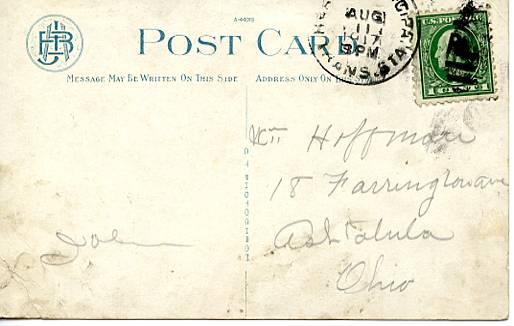 A-44018
POST CARD
MESSAGE MAY BE WRITTEN ON THIS SIDE
ADDRESS ONLY ON
AUG
11
3 PM
TRANS. STA.
U.S. POSTAGE
Wm Hoffman
18 Farringtonave
Ashtabula
Ohio
John